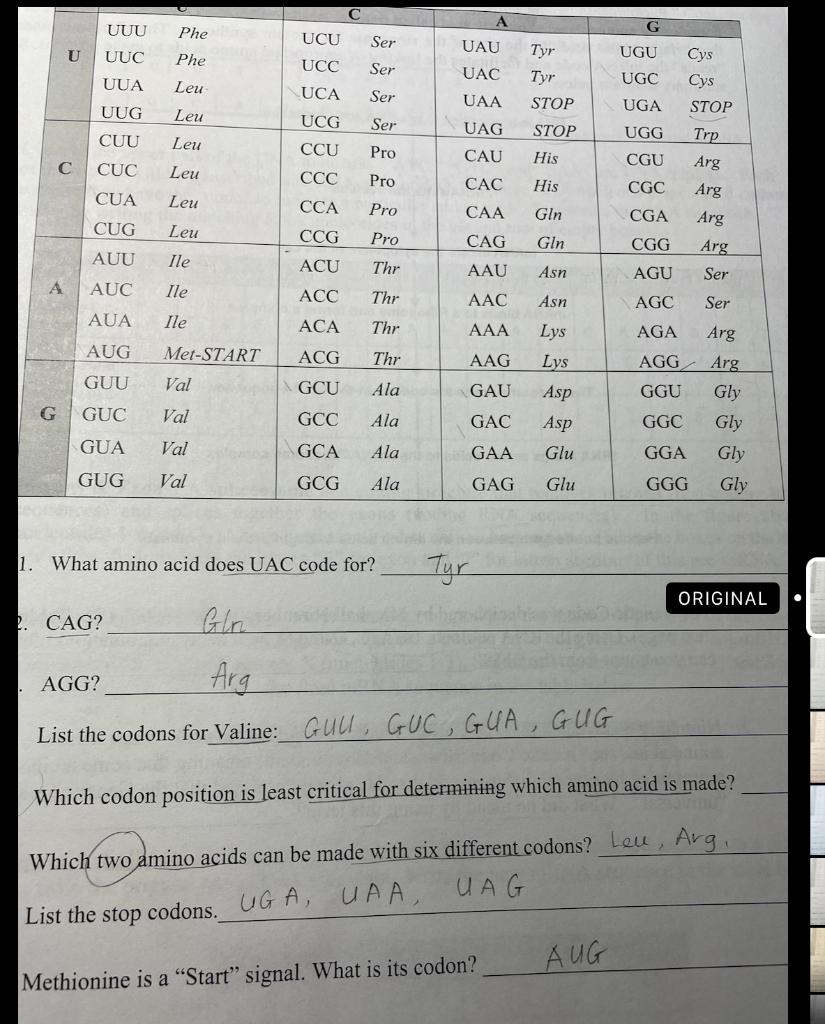 U C A G
U UUU Phe UCU Ser UAU Tyr UGU Cys
UUC Phe UCC Ser UAC Tyr UGC Cys
UUA Leu UCA Ser UAA STOP UGA STOP
UUG Leu UCG Ser UAG STOP UGG Trp
C CUU Leu CCU Pro CAU His CGU Arg
CUC Leu CCC Pro CAC His CGC Arg
CUA Leu CCA Pro CAA Gln CGA Arg
CUG Leu CCG Pro CAG Gln CGG Arg
A AUU Ile ACU Thr AAU Asn AGU Ser
AUC Ile ACC Thr AAC Asn AGC Ser
AUA Ile ACA Thr AAA Lys AGA Arg
AUG Met-START ACG Thr AAG Lys AGG Arg
G GUU Val GCU Ala GAU Asp GGU Gly
GUC Val GCC Ala GAC Asp GGC Gly
GUA Val GCA Ala GAA Glu GGA Gly
GUG Val GCG Ala GAG Glu GGG Gly
1. What amino acid does UAC code for? Tyr
ORIGINAL
2. CAG? Gln
. AGG? Arg
List the codons for Valine: GUU, GUC, GUA, GUG
Which codon position is least critical for determining which amino acid is made?
Which two amino acids can be made with six different codons? Leu, Arg.
List the stop codons. UGA, UAA, UAG
Methionine is a “Start” signal. What is its codon? AUG